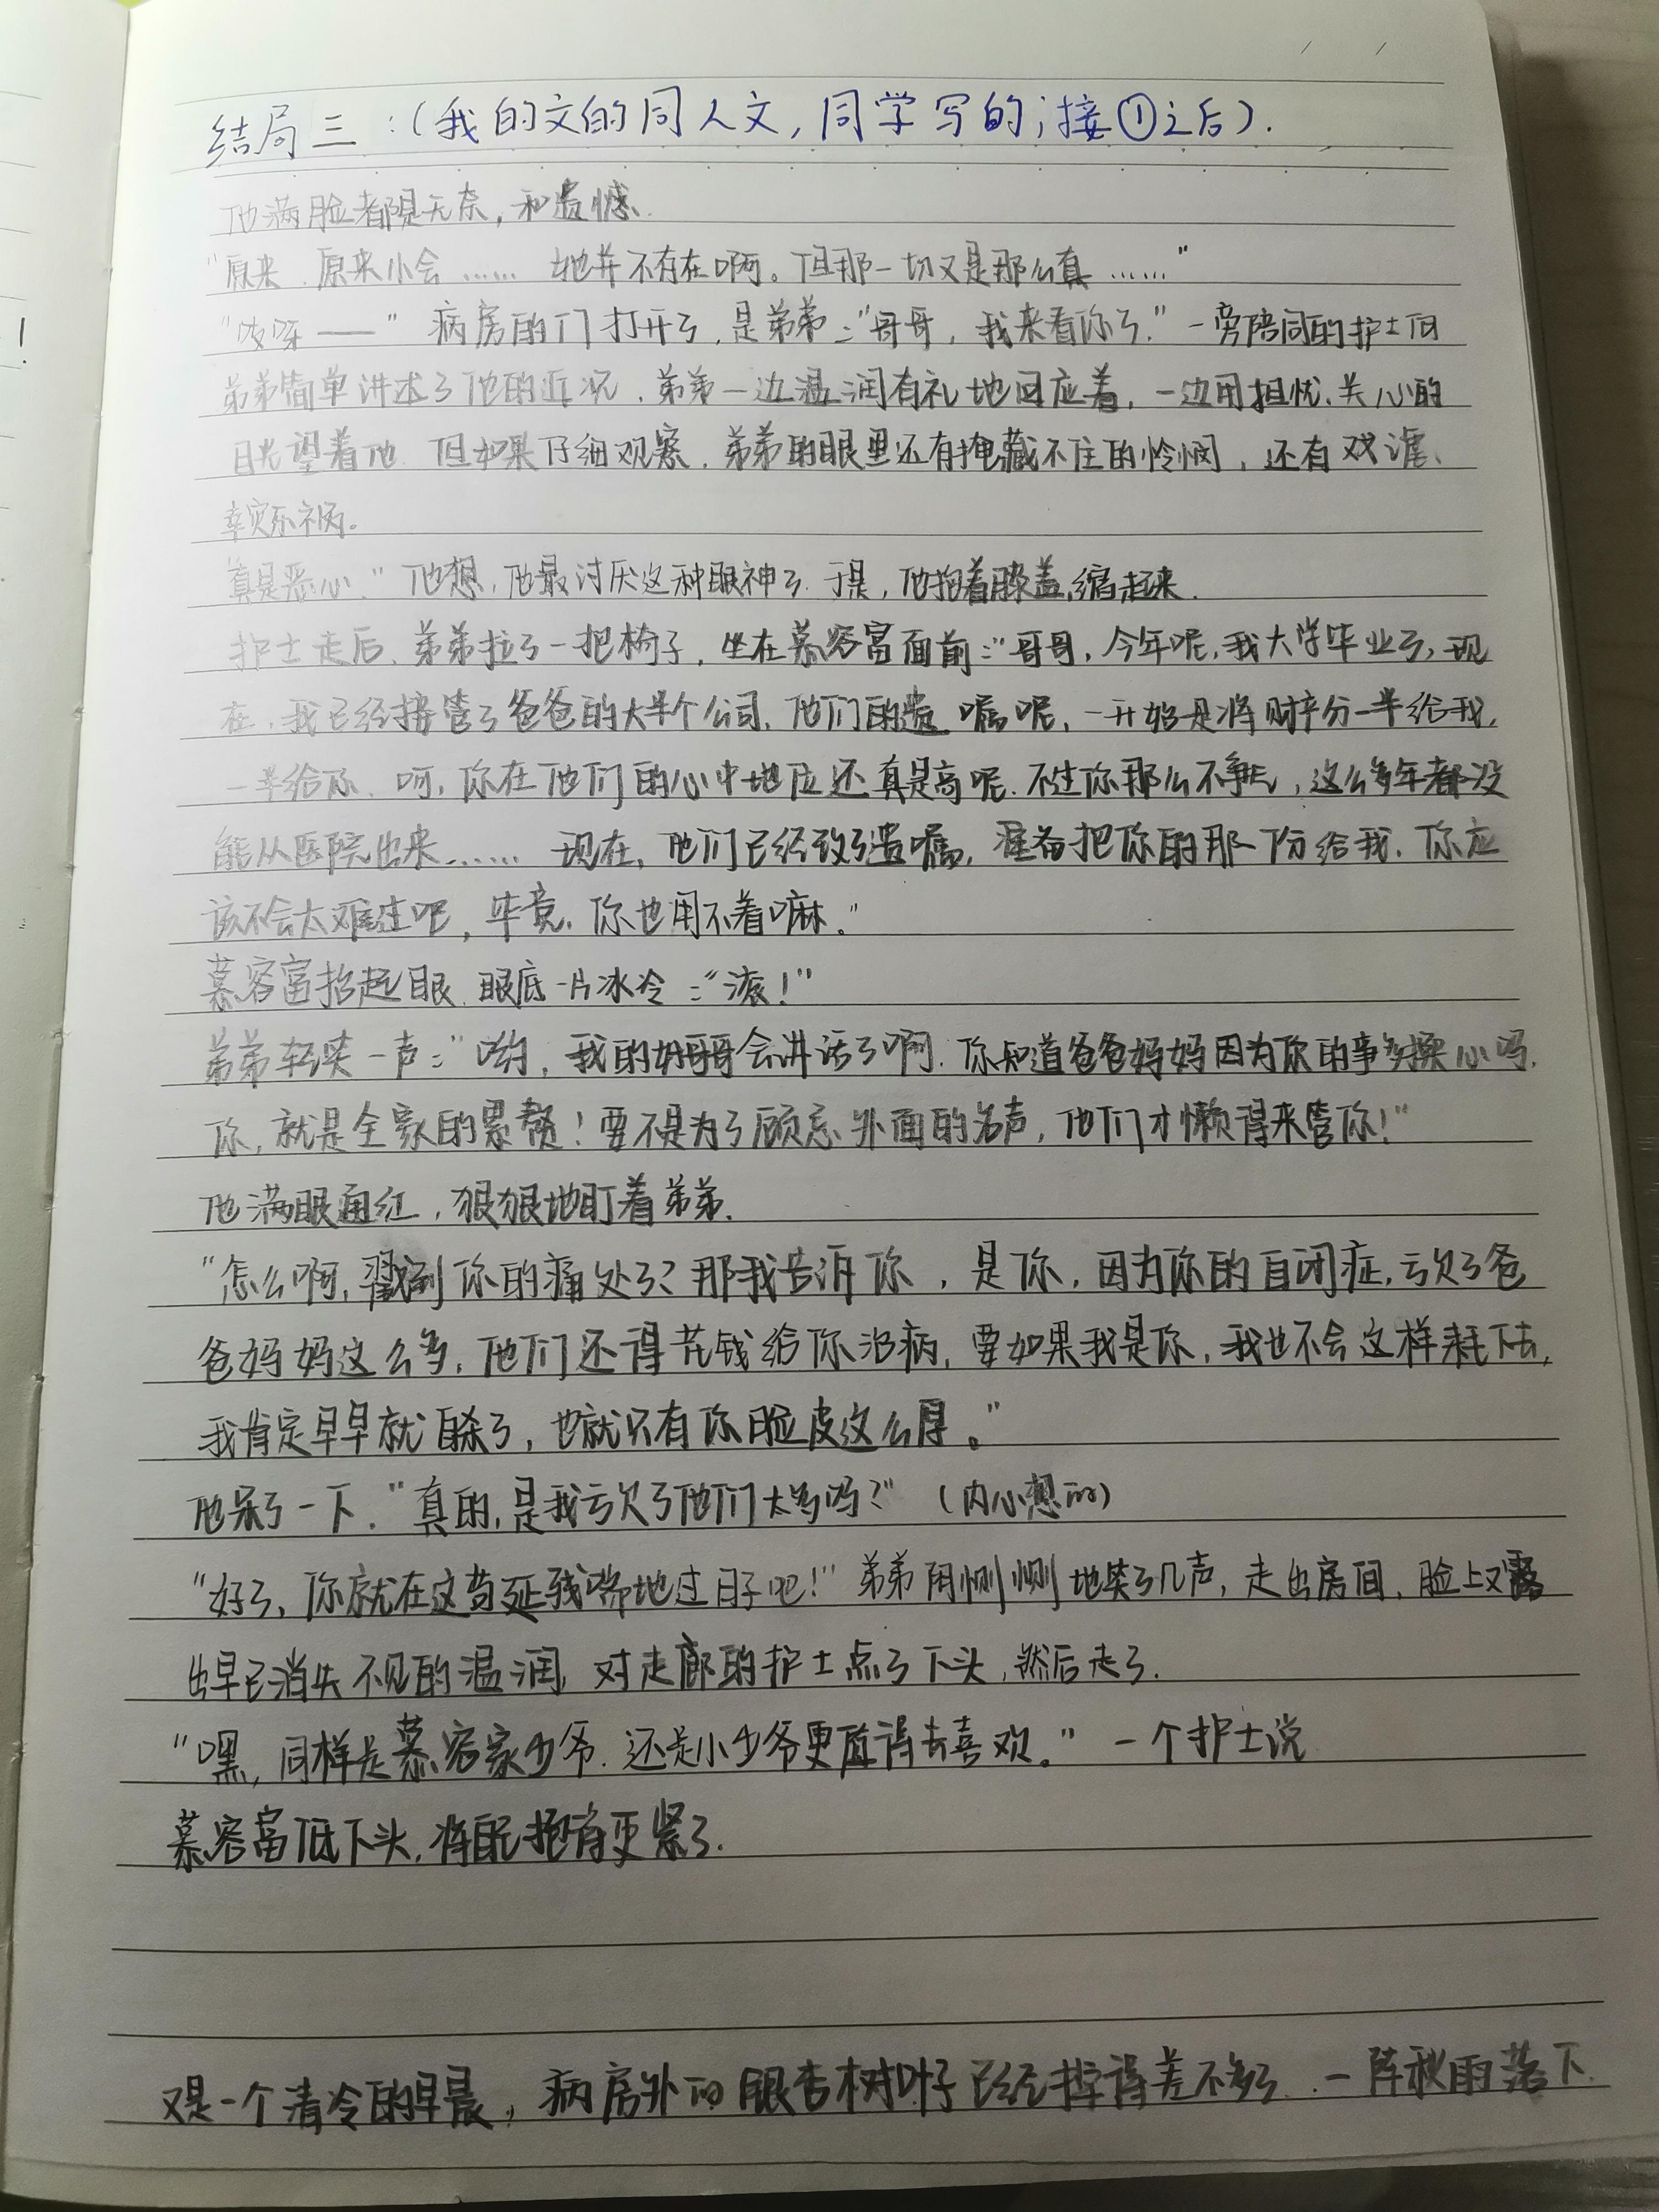 结局三:(我的文的同人文,同学写的;接①之后).
他满脸都是无奈,和遗憾.
"原来.原来小会…… 她并不存在啊。但那一切又是那么真……"
"吱呀——" 病房的门打开了,是弟弟:"哥哥,我来看你了."一旁陪同的护士向
弟弟简单讲述了他的近况,弟弟一边温润有礼地回应着,一边用担忧、关心的
目光望着他.但如果仔细观察,弟弟的眼里还有掩藏不住的怜悯,还有戏谑、
幸灾乐祸。
"真是恶心."他想,他最讨厌这种眼神了.于是,他抱着膝盖,缩起来.
护士走后,弟弟拉了一把椅子,坐在慕容富面前:"哥哥,今年呢,我大学毕业了,现
在,我已经接管了爸爸的大半个公司,他们的遗嘱呢,一开始是将财产分一半给我,
一半给你.呵,你在他们的心中地位还真是高呢.不过你那么不争气,这么多年都没
能从医院出来…… 现在,他们已经改了遗嘱,准备把你的那一份给我.你应
该不会太难过吧,毕竟,你也用不着嘛."
慕容富抬起眼,眼底一片冰冷:"滚!"
弟弟轻笑一声:"哟,我的好哥哥会讲话了啊.你知道爸爸妈妈因为你的事多操心吗.
你,就是全家的累赘!要不是为了顾忌外面的名声,他们才懒得来管你!"
他满眼通红,狠狠地盯着弟弟.
"怎么啊,戳到你的痛处了?那我告诉你,是你,因为你的自闭症,亏欠了爸
爸妈妈这么多,他们还得花钱给你治病,要如果我是你,我也不会这样耗下去,
我肯定早早就自杀了,也就只有你脸皮这么厚。"
他呆了一下."真的,是我亏欠了他们太多吗?" (内心想的)
"好了,你就在这苟延残喘地过日子吧!"弟弟阴恻恻地笑了几声,走出房间,脸上又露
出早已消失不见的温润,对走廊的护士点了下头,然后走了.
"嘿,同样是慕容家少爷.还是小少爷更值得去喜欢。" 一个护士说
慕容富低下头,将自己抱得更紧了.
又是一个清冷的早晨,病房外的银杏树叶子已经掉得差不多了.一阵秋雨落下.